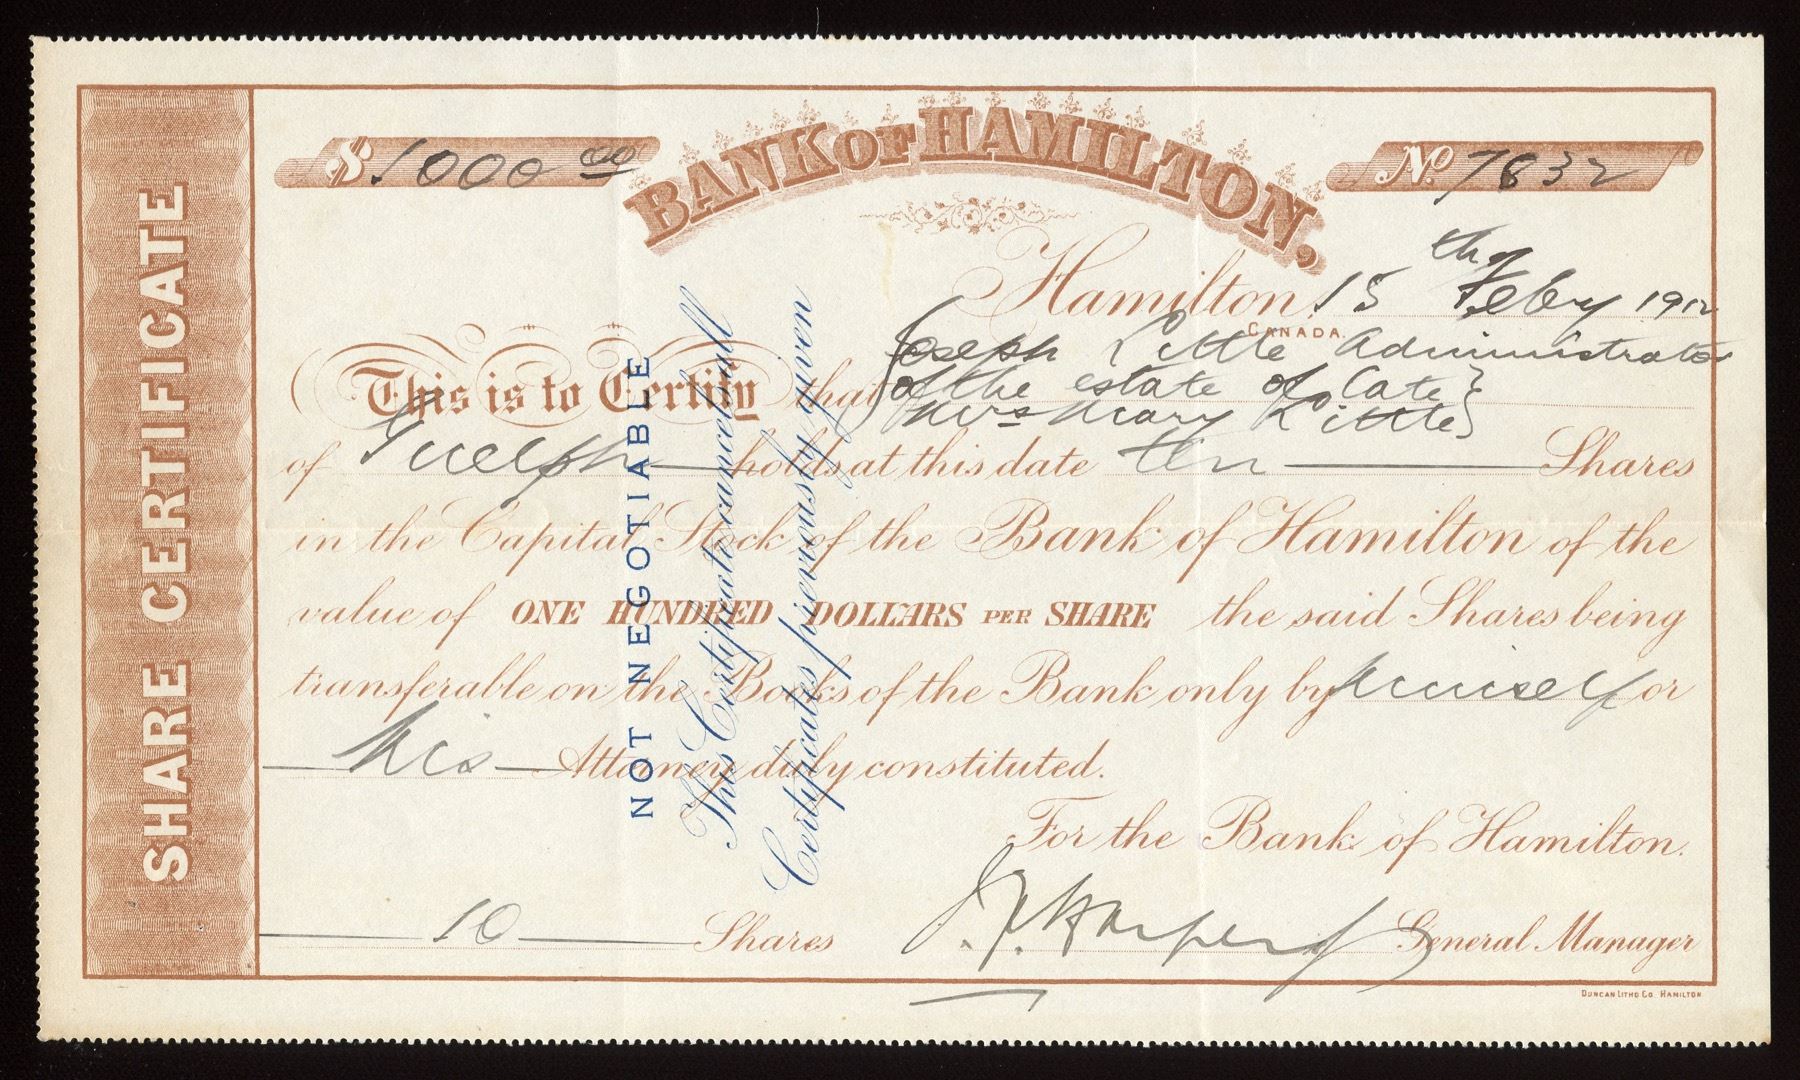 SHARE CERTIFICATE
$ 1000 00
BANK OF HAMILTON,
No. 7832
Hamilton, 15th Feby 1912
CANADA.
This is to Certify that Joseph Little Administrator
of the estate of late
Mrs Mary Little
of Guelph holds at this date ten Shares
in the Capital Stock of the Bank of Hamilton of the
value of ONE HUNDRED DOLLARS PER SHARE the said Shares being
transferable on the Books of the Bank only by himself or
his Attorney duly constituted.
For the Bank of Hamilton.
10 Shares
General Manager
NOT NEGOTIABLE
This Certificate cancels all
Certificates previously given
DUNCAN LITHO CO HAMILTON